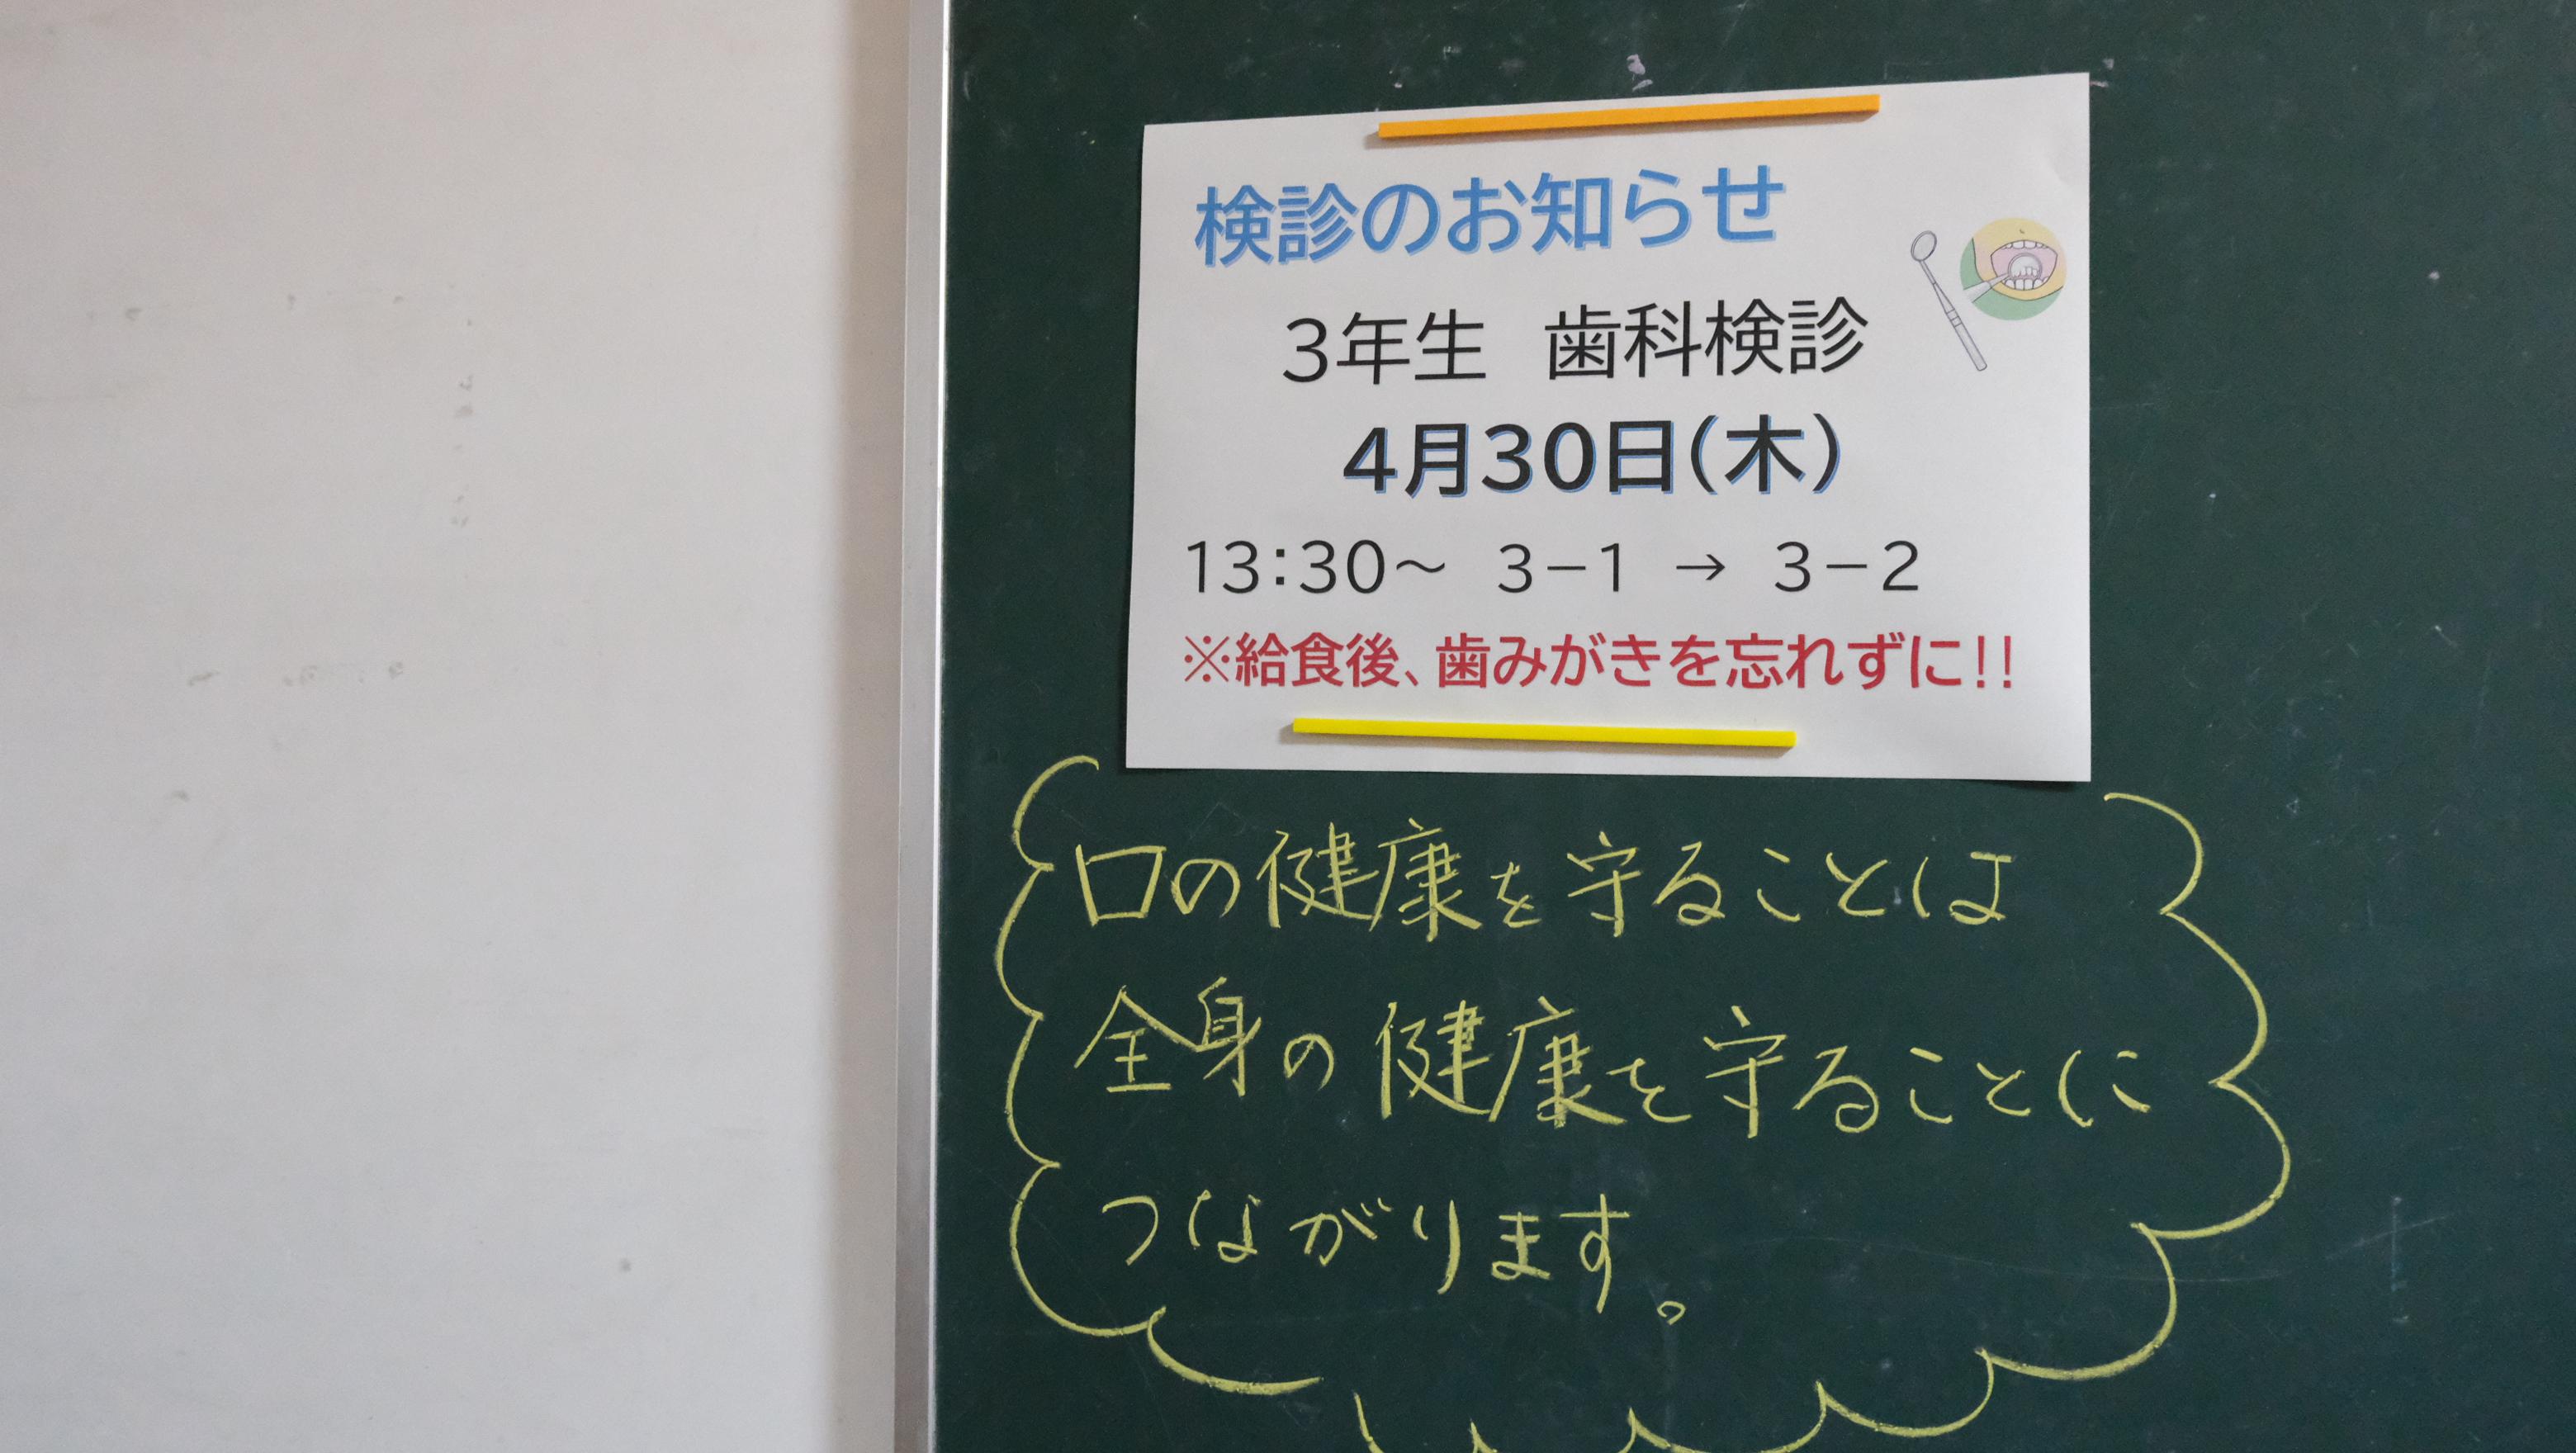 検診のお知らせ
3年生 歯科検診
4月30日(木)
13:30～ 3－1 → 3－2
※給食後、歯みがきを忘れずに!!
口の健康を守ることは
全身の健康を守ることに
つながります。